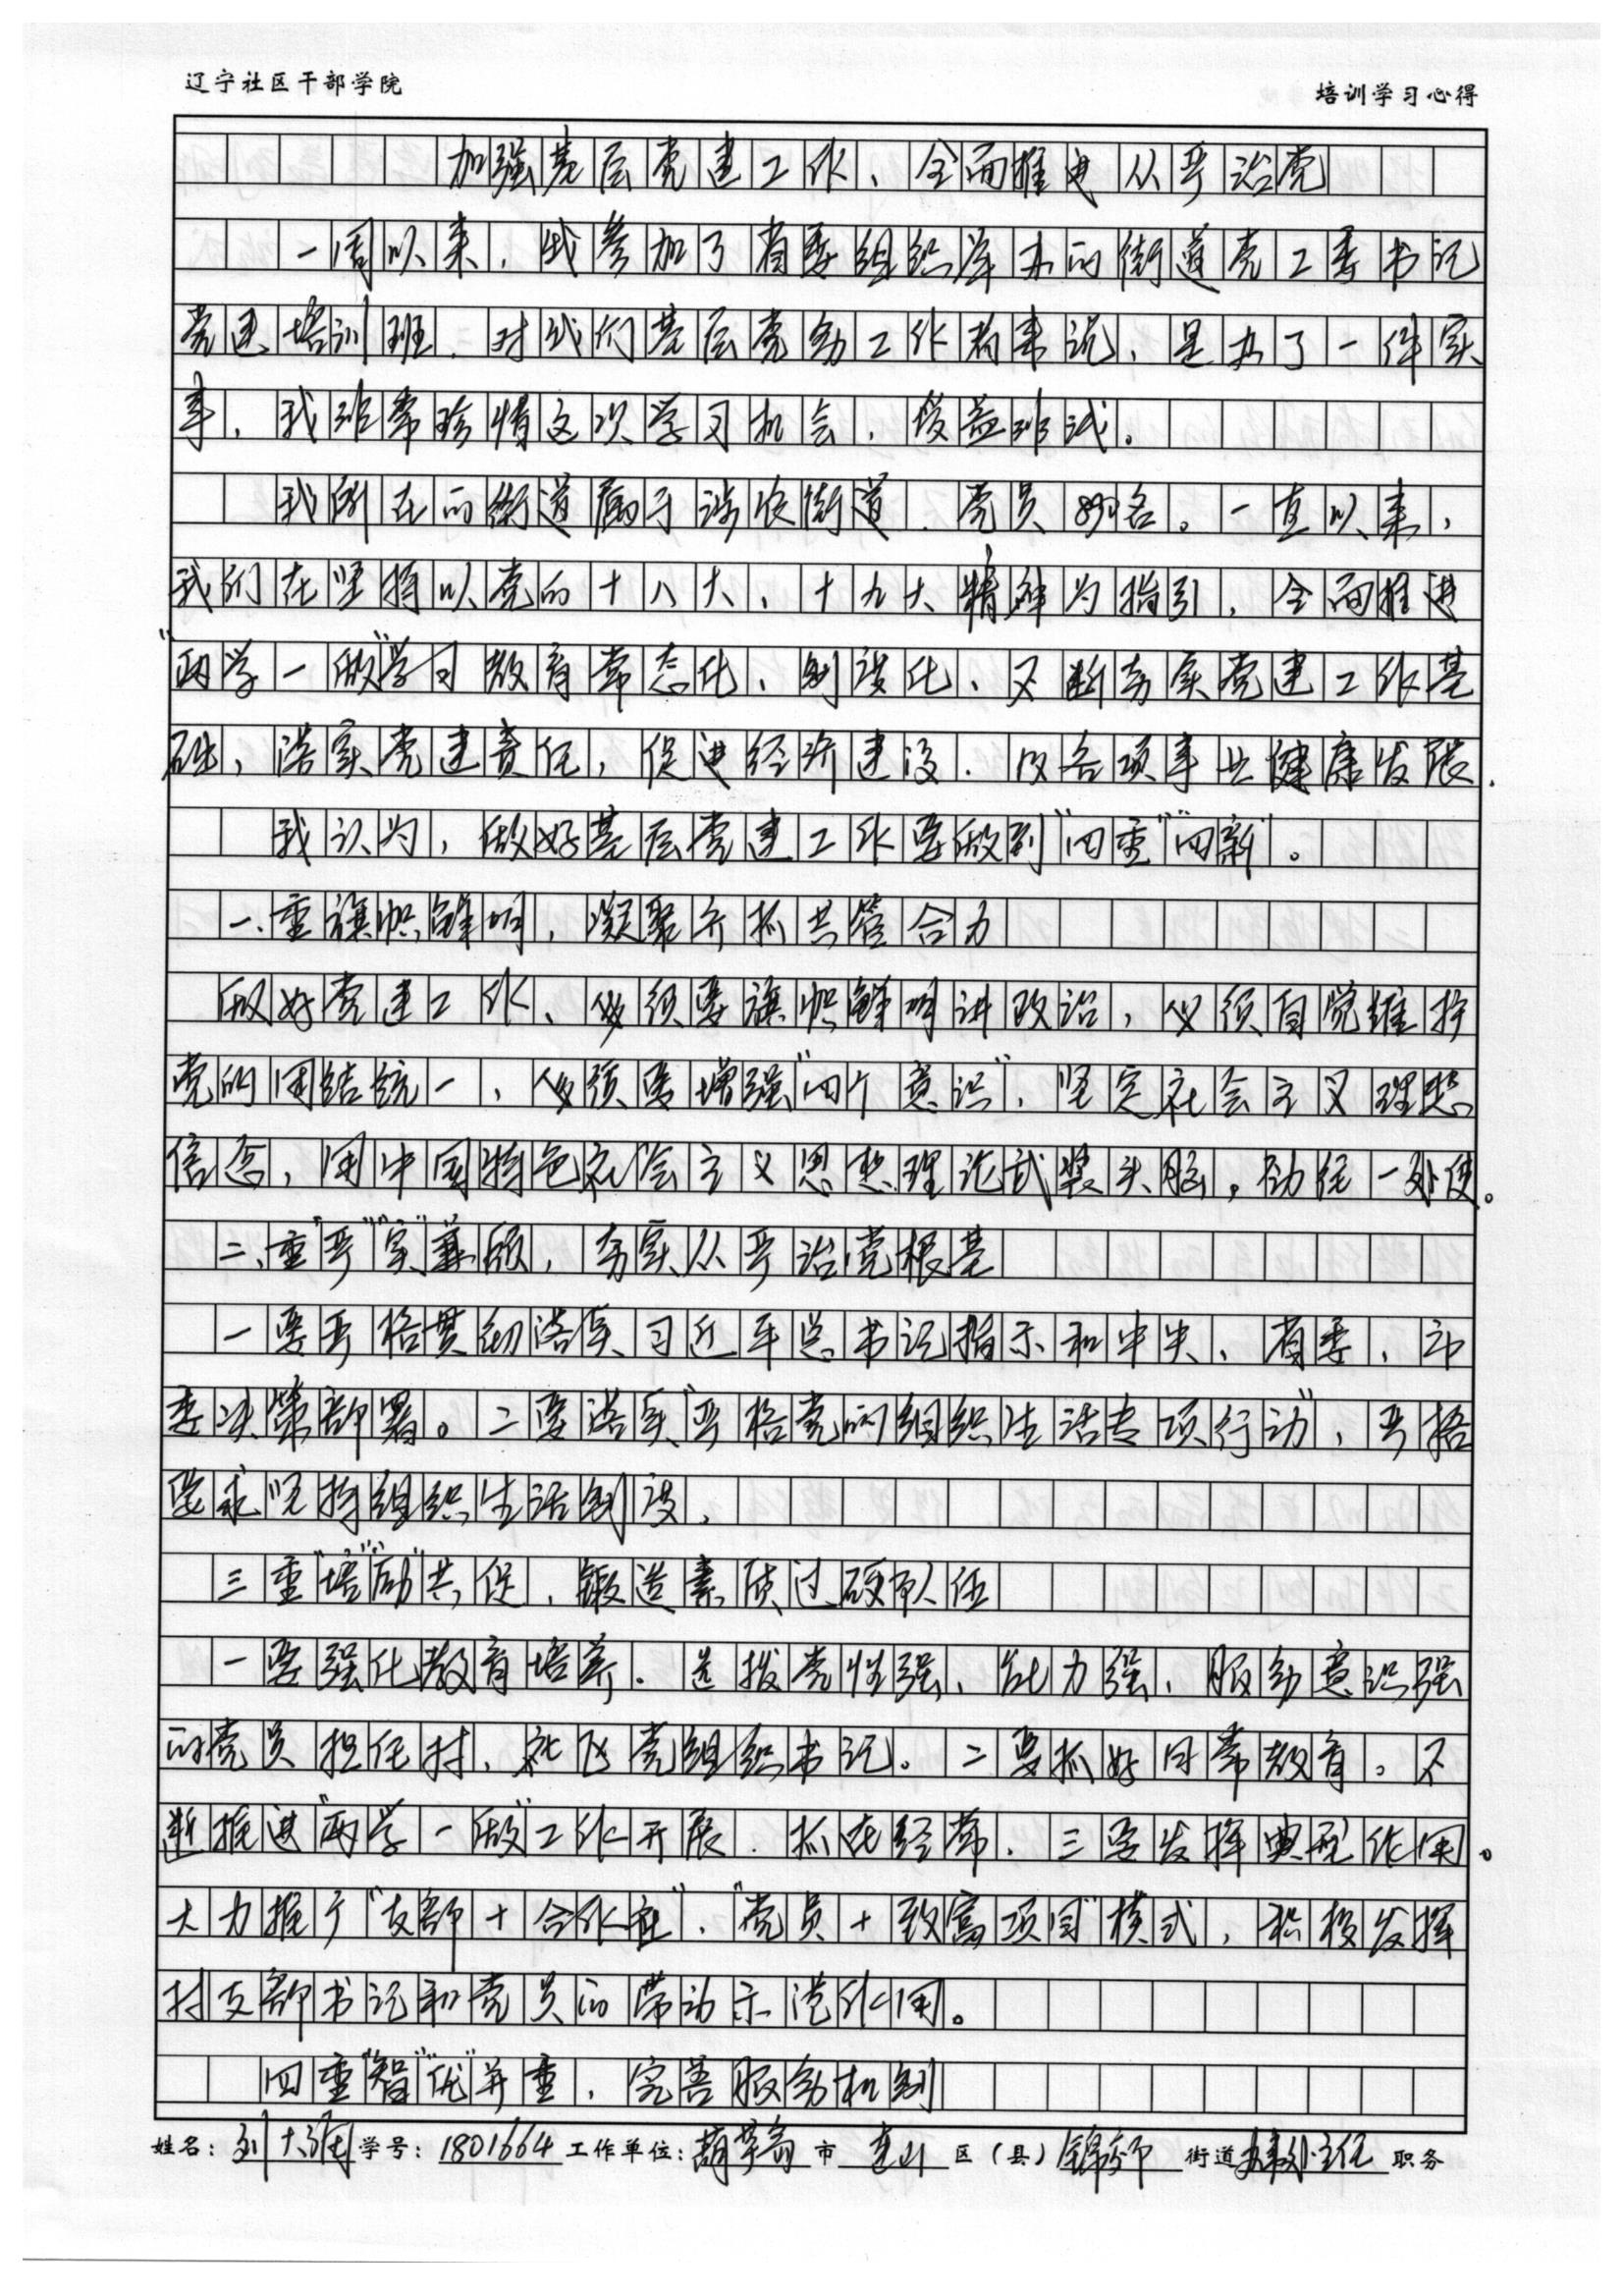 辽宁社区干部学院
培训学习心得
加强基层党建工作、全面推进从严治党
一周以来，我参加了省委组织举办的街道党工委书记
党建培训班，对我们基层党务工作者来说，是办了一件实
事，我班常珍惜这次学习机会，受益班浅。
我所在的街道属于涉农街道，党员890名。一直以来，
我们在坚持以党的十八大、十九大精神为指引，全面推进
“两学一做”学习教育常态化、制度化、不断夯实党建工作基
础，落实党建责任，促进经济建设，及各项事业健康发展.
我认为，做好基层党建工作要做到“四重”“四新”。
一、重旗帜鲜明，凝聚齐抓共管合力
做好党建工作、必须要旗帜鲜明讲政治，必须自觉维护
党的团结统一，必须要增强“四个意识”，坚定社会主义理想
信念，用中国特色社会主义思想理论武装头脑，劲往一处使。
二、重“严”“实”兼顾，夯实从严治党根基
一要严格贯彻落实习近平总书记指示和中央、省委，市
委决策部署。二要落实“严格党的组织生活专项行动”，严格
要求坚持组织生活制度，
三重“培”“励”共促，锻造素质过硬队伍
一要强化教育培养．选拨党性强、能力强，服务意识强
的党员担任村、社区党组织书记。二要抓好日常教育。不
断推进“两学一做”工作开展．抓在经常．三要发挥典型作用。
大力推广“支部+合作社”、“党员+致富项目”模式，积极发挥
村支部书记和党员的带动示范作用。
四重“智”“优”并重，完善服务机制
姓名：刘大 学号：1801664 工作单位：葫芦岛 市 连山 区（县） 锦郊 街道 办事处主任 职务